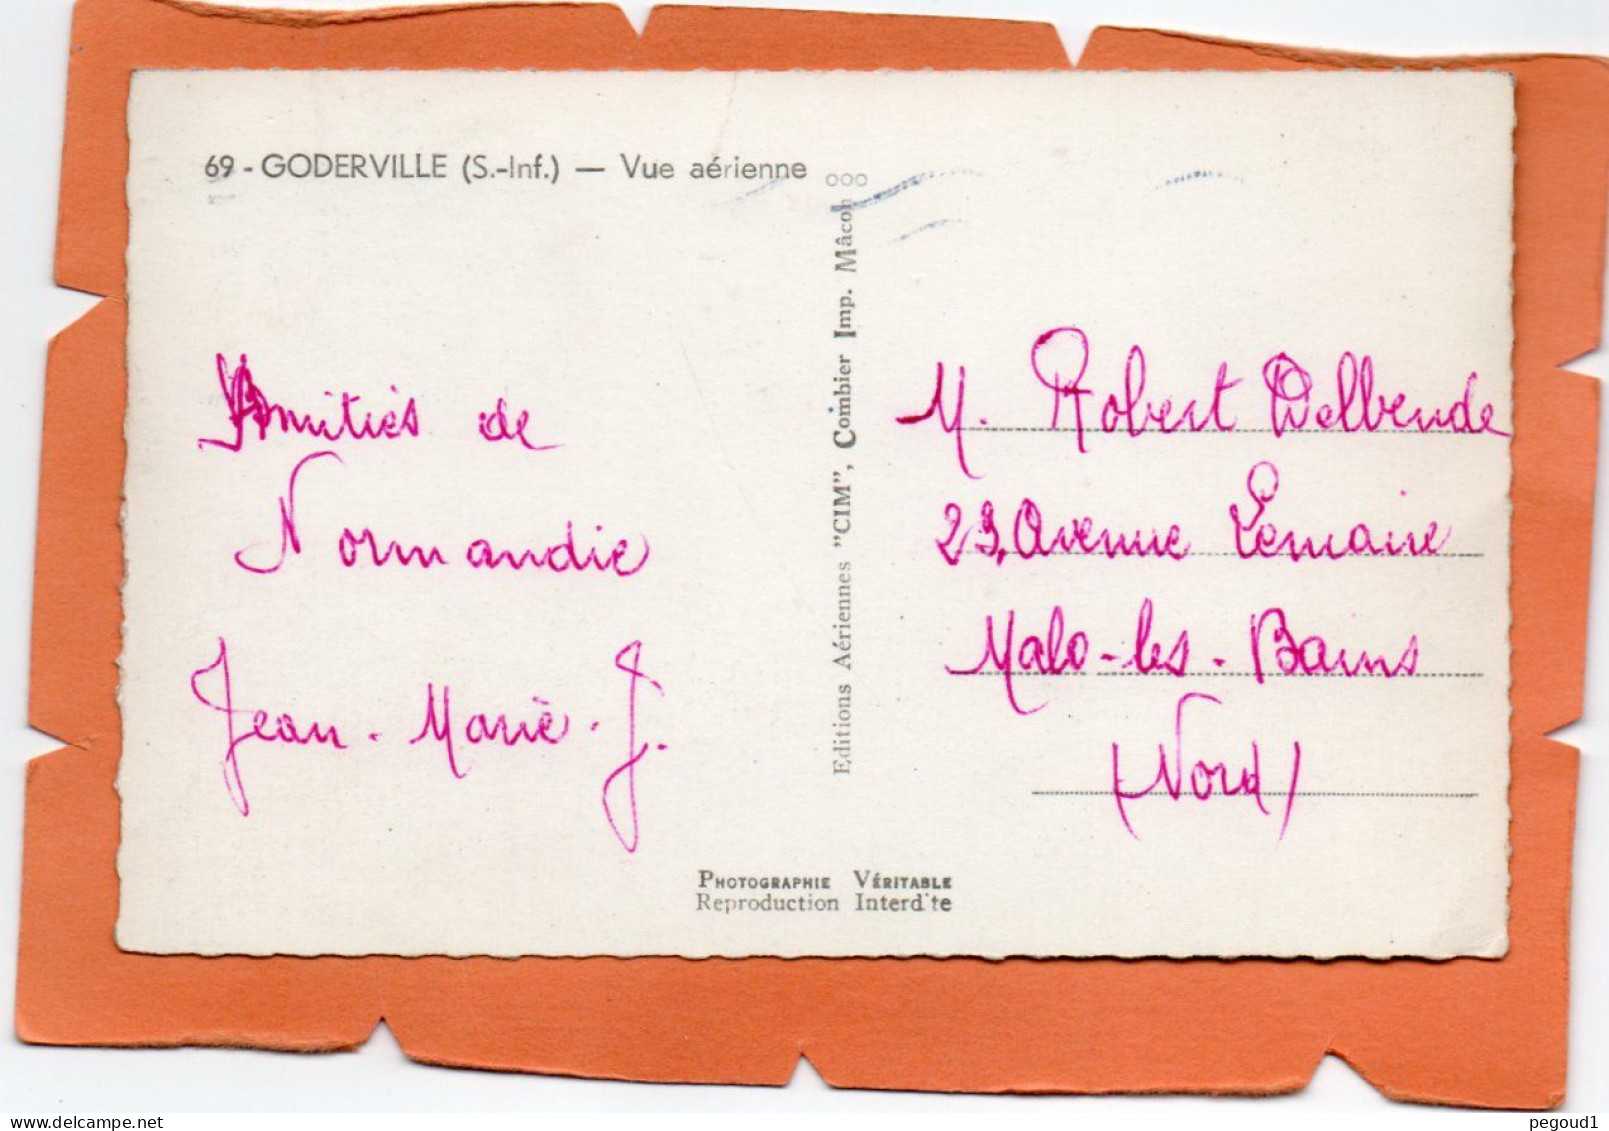 69 - GODERVILLE (S.-Inf.) — Vue aérienne
Amitiés de
Normandie
Jean-Marie-J.
Editions Aériennes "CIM", Combier Imp. Mâcon
M. Robert Delbende
23, Avenue Lemaire
Malo-les-Bains
(Nord)
PHOTOGRAPHIE VÉRITABLE
Reproduction Interd'te
pegoud1